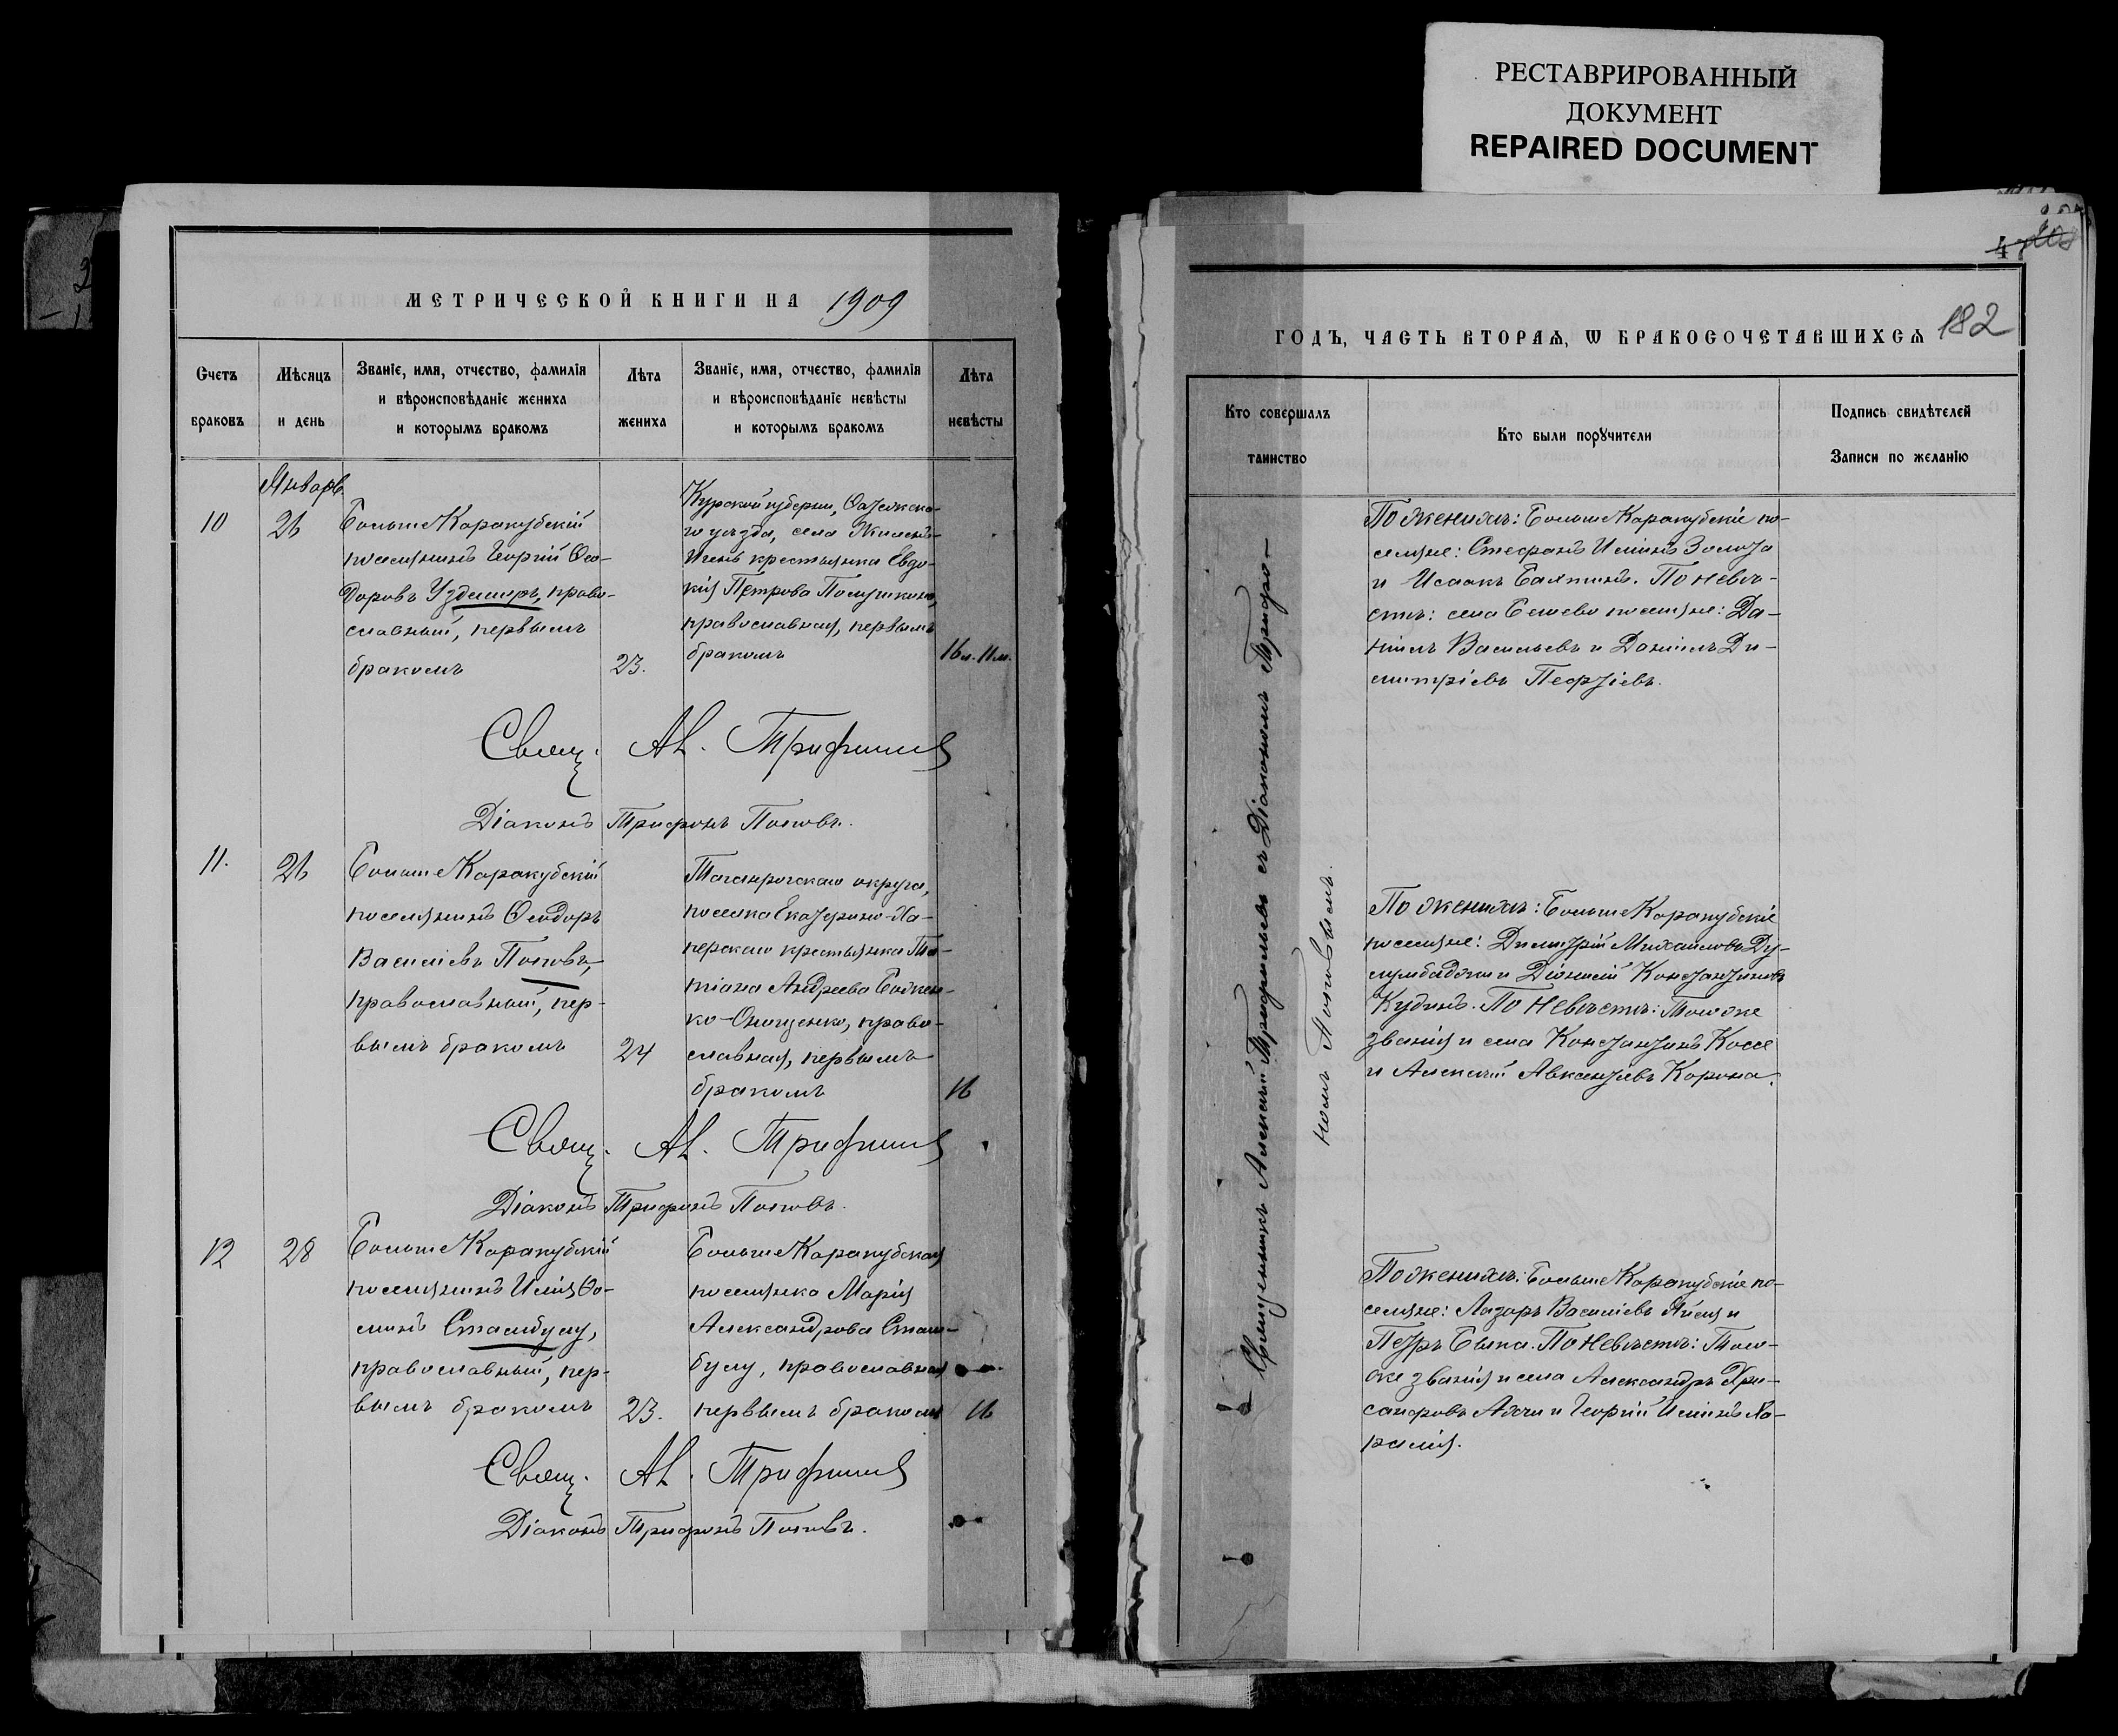 РЕСТАВРИРОВАННЫЙ
ДОКУМЕНТ
REPAIRED DOCUMENT
МЕТРИЧЕСКОЙ КНИГИ НА 1909
Счетъ
браковъ
Мѣсяцъ
и день
Званіе, имя, отчество, фамилія
и вѣроисповѣданіе жениха
и которымъ бракомъ
Лѣта
жениха
Званіе, имя, отчество, фамилія
и вѣроисповѣданіе невѣсты
и которымъ бракомъ
Лѣта
невѣсты
Январь
10
26
Больше Каракубскій
поселянинъ Георгій Ѳео-
доровъ Уздемиръ, право-
славный, первымъ
бракомъ
23.
Курской губерніи,
го уѣзда, села
крестьянка Евдо-
кія Петрова
православная, первымъ
бракомъ
16 л. 11 м.
Свящ. Ал. Трифильев
Діаконъ Трифонъ Поповъ.
11.
26
Больше Каракубскій
поселянинъ Ѳеодоръ
Василіевъ Поповъ,
православный, пер-
вымъ бракомъ
24
Таганрогскаго округа,
поселка Екатерино-Ха-
перскаго крестьянка Та-
тіана Андреева
ко-Онищенко, право-
славная, первымъ
бракомъ
16
Свящ. Ал. Трифильев
Діаконъ Трифонъ Поповъ.
12
28
Больше Каракубскій
поселянинъ Илія Ѳо-
минъ Стамбулу,
православный, пер-
вымъ бракомъ
23.
Больше Каракубская
поселянка Марія
Александрова Стам-
булу, православная
первымъ бракомъ
16
Свящ. Ал. Трифильев
Діаконъ Трифонъ Поповъ.
182
ГОДЪ, ЧАСТЬ ВТОРАѦ, Ѡ БРАКОСОЧЕТАВШИХСѦ
Кто совершалъ
таинство
Кто были порꙋчители
Подпись свидѣтелей
Записи по желанію
Священникъ Алексій Трифильевъ съ Діакономъ Трифо-
номъ Поповымъ.
По женихѣ: Больше Каракубскіе по-
селяне: Стефанъ Иліинъ Золота
и Исаакъ Балтинъ. По невѣ-
стѣ: села Бешево поселяне: Да-
ніилъ Васильевъ и Даніилъ Ди-
митріевъ
По женихѣ: Больше Каракубскіе
поселяне: Димитрій Михаиловъ Ду-
лумбаджи и Діонисій Константиновъ
Кудинъ. По Невѣстѣ: Того же
званія и села Константинъ Коссе
и Алексій Авксентіевъ Корона.
По женихѣ: Больше Каракубскіе по-
селяне: Лазарь Василіевъ и
Петръ Быка. По Невѣстѣ: Того-
же званія и села Александръ Хри-
санфовъ и Георгій Иліинъ Ха-
ралія.